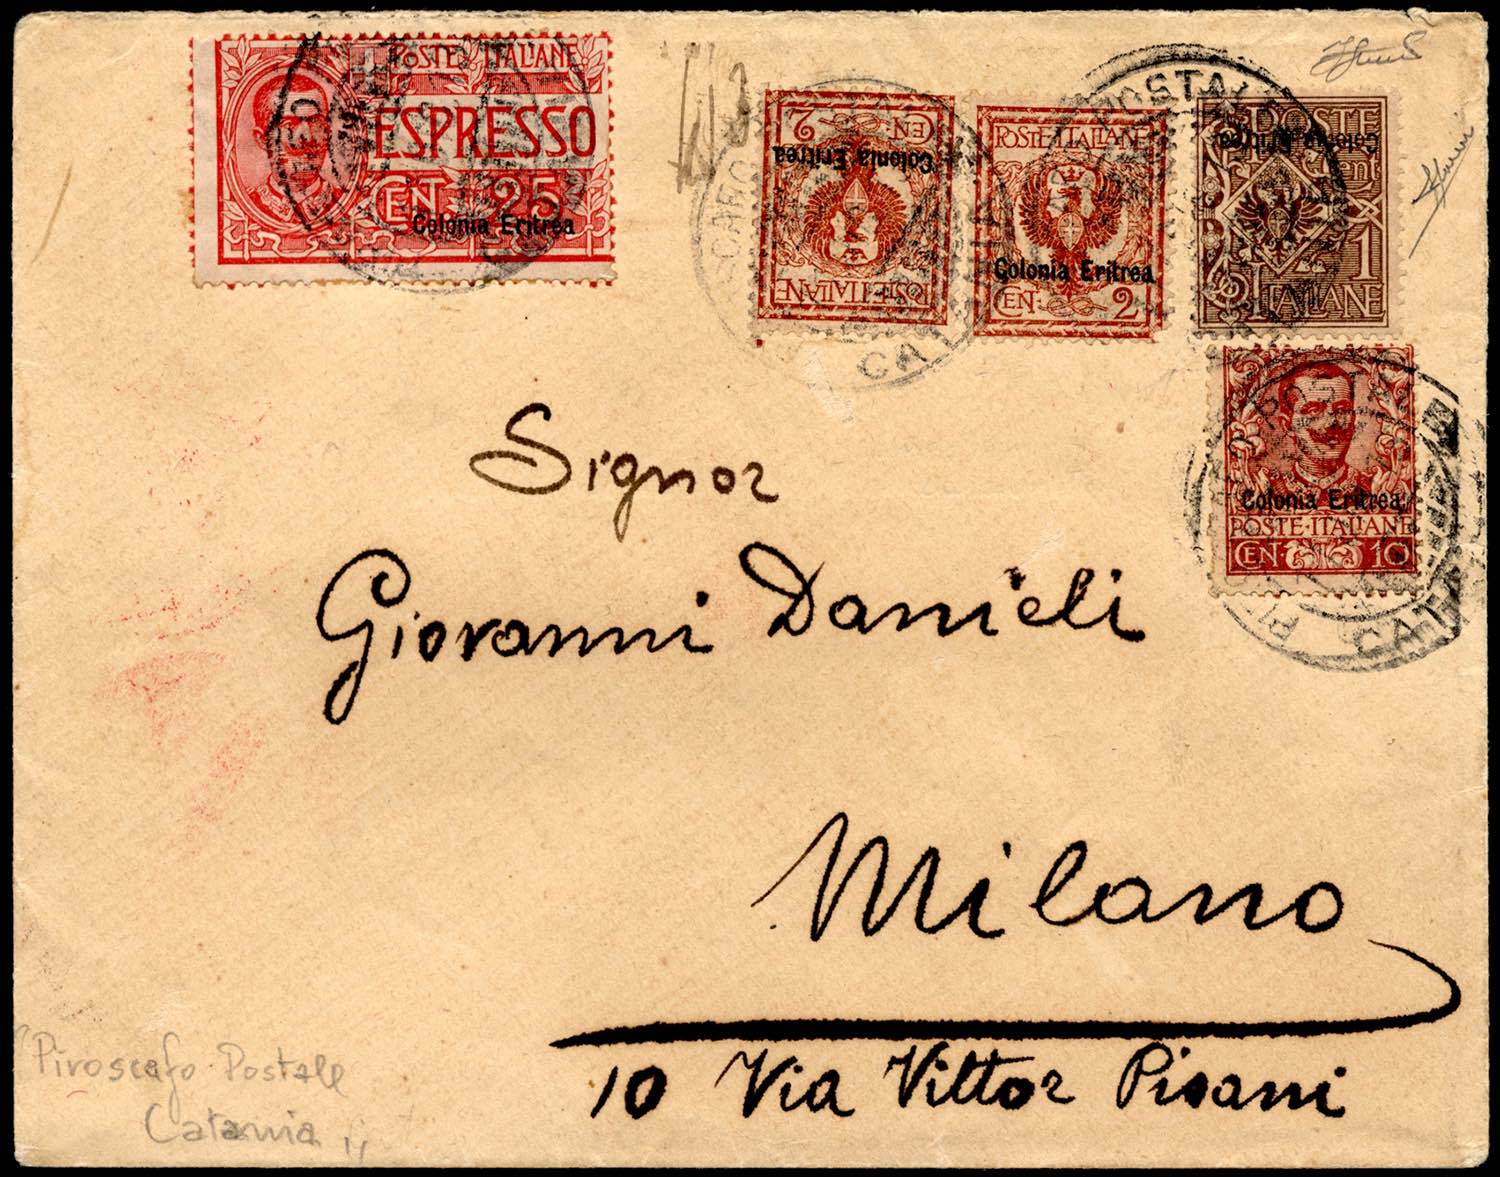 POSTE ITALIANE
ESPRESSO
CEN 25
Colonia Eritrea
CEN 2
Colonia Eritrea
POSTE·ITALIANE
POSTE·ITALIANE
Colonia Eritrea
CEN 2
POSTE
Colonia Eritrea
Cent
1
ITALIANE
Colonia Eritrea
POSTE·ITALIANE
CEN 10
POSTALE
CA
Signor
Giovanni Danieli
Milano
10 Via Vittor Pisani
"Piroscafo Postale
Catania"